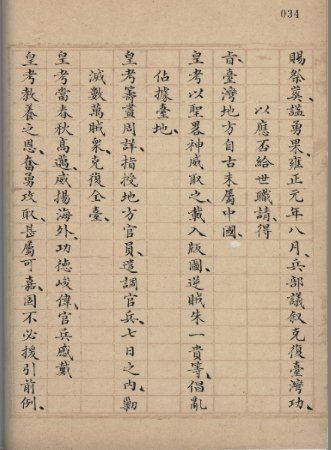 034
賜祭葬謚勇果、雍正元年八月、兵部議叙克復臺灣功、
以應否給世職請、得
旨、臺灣地方自古未屬中國、
皇考以聖畧神威取之、載入版圖、逆賊朱一貴等、倡亂
佔據臺地、
皇考籌畫周詳指授地方官員、遣調官兵七日之內、勦
滅數萬賊衆、克復全臺、
皇考當春秋高邁、威揚海外、功德峻偉、官兵感戴
皇考教養之恩、奮勇攻取、甚屬可嘉、因不必援引前例、